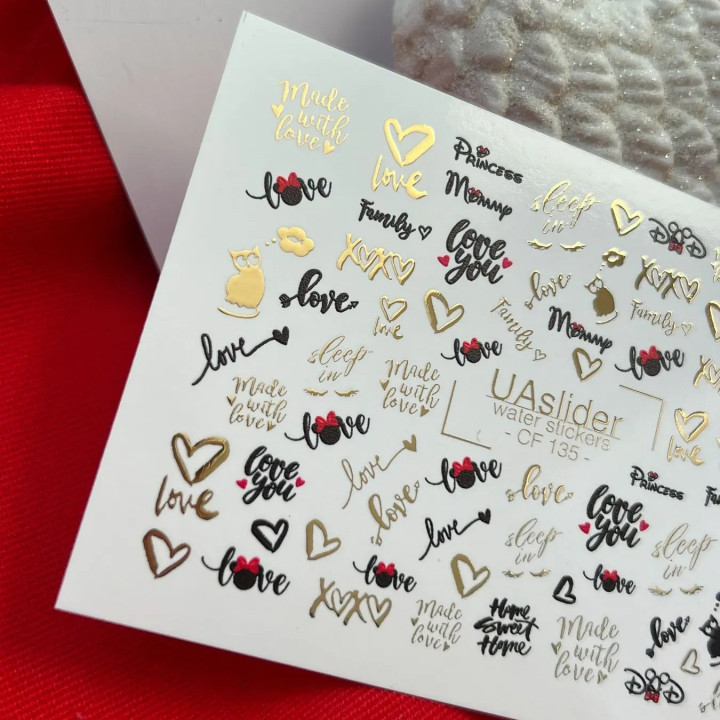 Made
with
love
love
Princess
Mommy
sleep
in
love
Family
love
you
DAD
XOXO
love
love
XOXO
love
Family
Mommy
Family
love
love
love
sleep
in
Made
with
love
Made
with
love
love
UAslider
water stickers
- CF 135 -
love
love
love
you
love
love
love
love
Princess
love
you
love
sleep
in
sleep
in
love
love
love
XOXO
Made
with
love
Home
Sweet
Home
Made
with
love
love
DAD